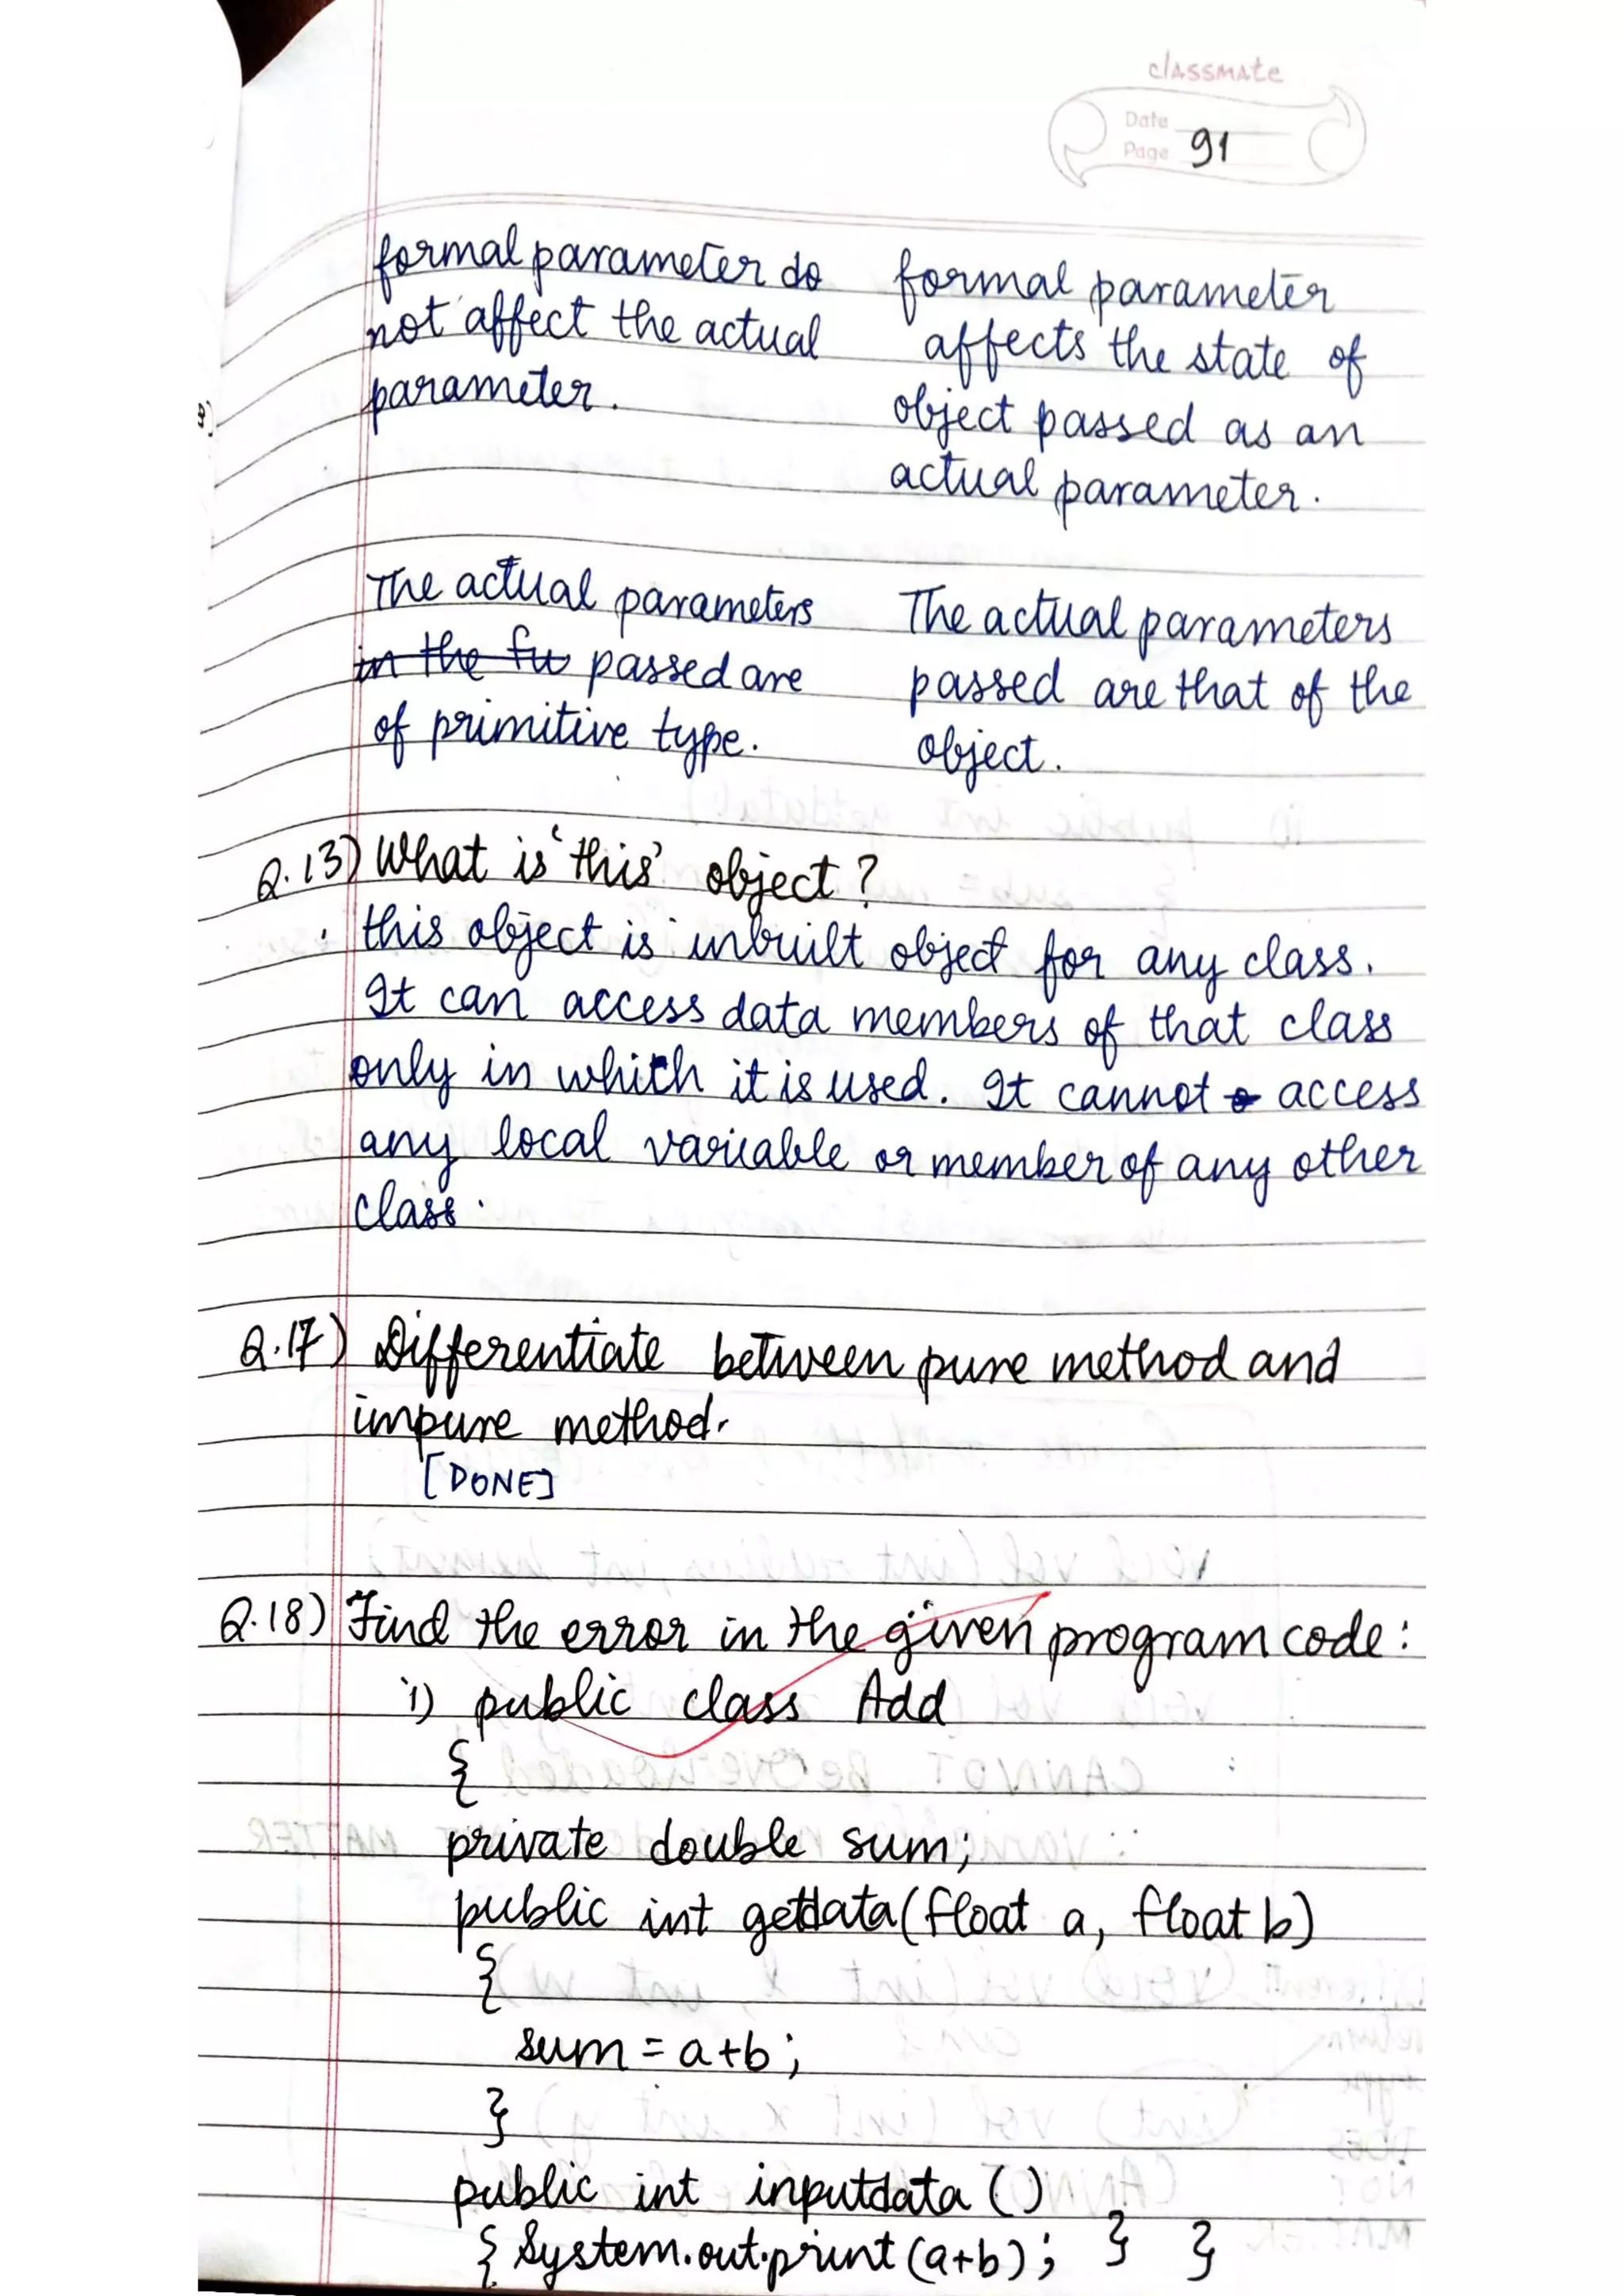 classmate
Date
Page 91
formal parameter do
not affect the actual
parameter.
formal parameter
affects the state of
object passed as an
actual parameter.
The actual parameters
in the fu passed are
of primitive type.
The actual parameters
passed are that of the
object.
Q.13) What is 'this' object?
: this object is inbuilt object for any class.
It can access data members of that class
only in which it is used. It cannot access
any local variable or member of any other
class.
Q.17) Differentiate between pure method and
impure method.
[DONE]
Q.18) Find the error in the given program code:
i) public class Add
{
private double sum;
public int getdata(float a, float b)
{
sum = a+b;
}
public int inputdata ()
{ System.out.print(a+b); } }